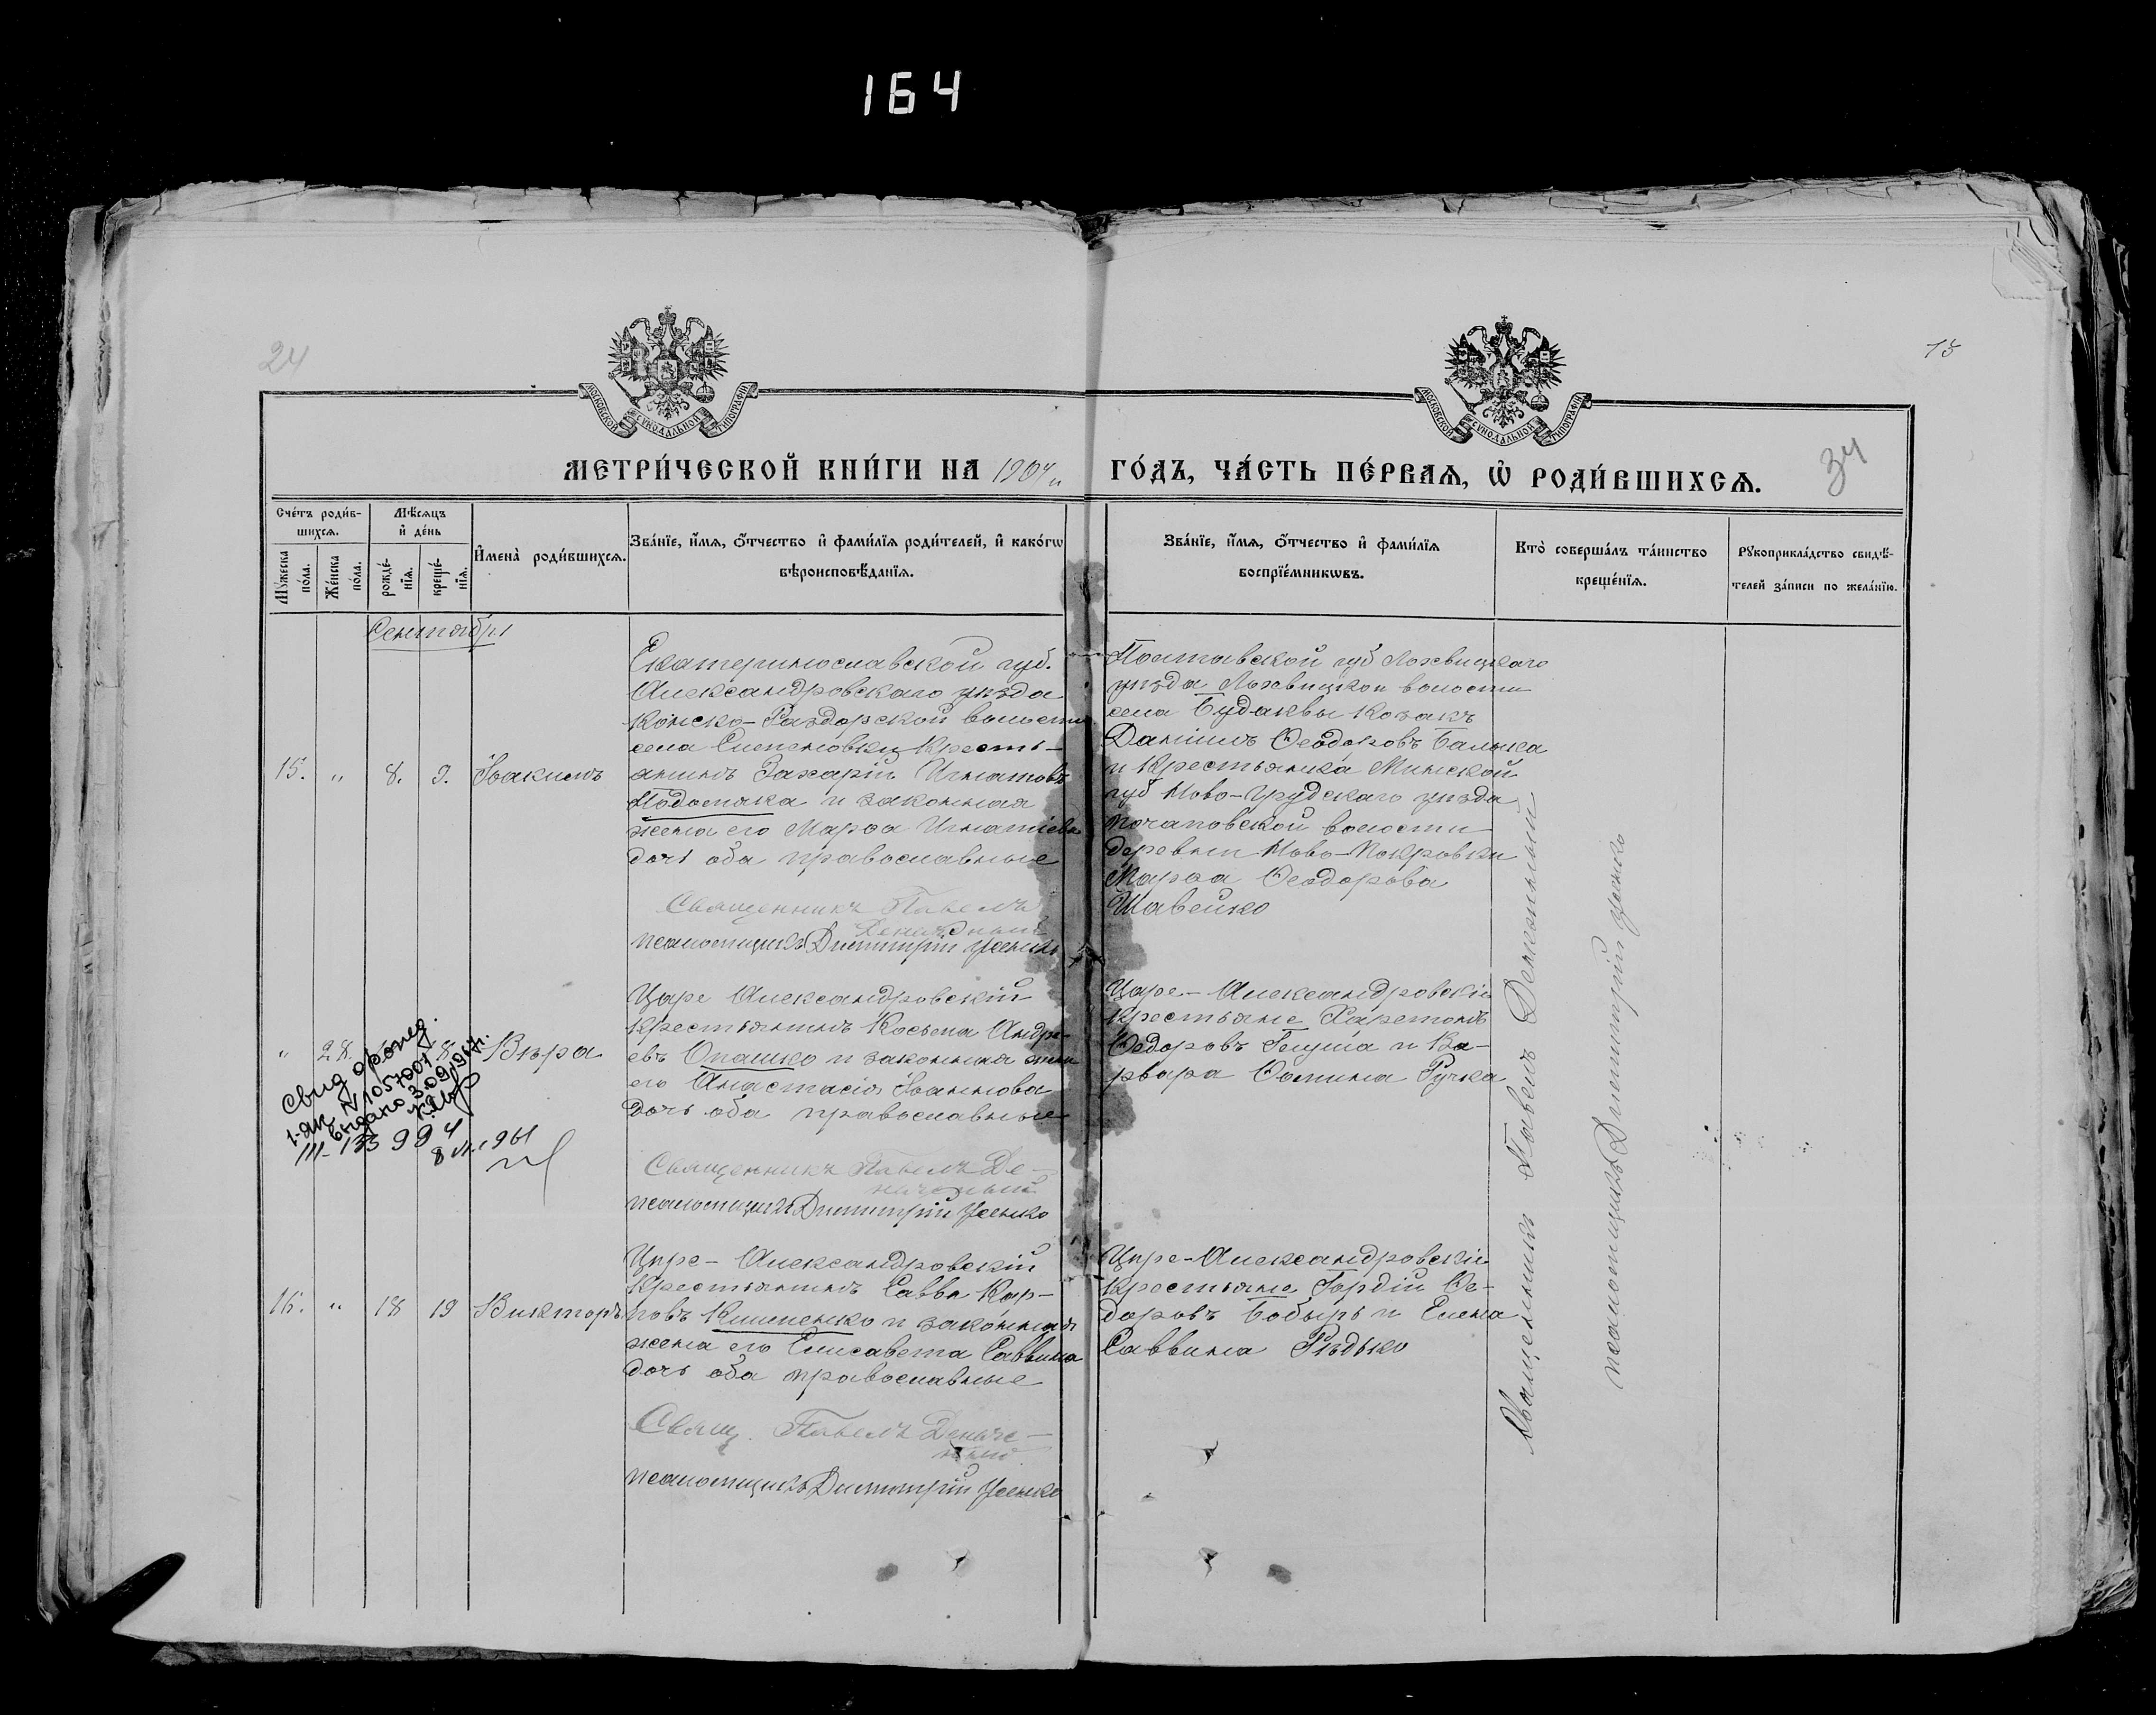 164
24
15
34
МОСКОВСКОЙ СѴНОДАЛЬНОЙ ТИПОГРАФІИ
МОСКОВСКОЙ СѴНОДАЛЬНОЙ ТИПОГРАФІИ
МЕТРИ́ЧЕСКОЙ КНИ́ГИ НА 1904 ГО́ДЪ, ЧА́СТЬ ПЕ́РВАѦ, Ѡ҆ РОДИ́ВШИХСѦ.
Сче́тъ роди́в-
шихсѧ.
Мꙋ́жеска по́ла.
Же́нска по́ла.
Мѣ́сѧцъ
и҆ де́нь
рожде́-
нїѧ.
креще́-
нїѧ.
И҆мена̀ роди́вшихсѧ.
Зва́нїе, и҆́мѧ, ѻ҆́тчество и҆ фами́лїѧ роди́телей, и҆ како́гѡ
вѣроисповѣ́данїѧ.
Зва́нїе, и҆́мѧ, ѻ҆́тчество и҆ фами́лїѧ
воспрїе́мникѡвъ.
Кто̀ соверша́лъ та́инство
креще́нїѧ.
Рꙋкоприкла́дство свидѣ́-
телей за́писи по жела́нїю.
Сентябрь
15. „ 8. 9. Іоакимъ
Екатеринославской губ.
Александровскаго уѣзда
Конско-Раздорской волости
села Степановки Кресть-
янинъ Захарій Игнатовъ
и законная
жена его Марѳа Игнатіева
дочь оба православные
Священникъ Павелъ
псаломщикъ Димитрій Усенко
Полтавской губ Лохвицкаго
уѣзда Лохвицкой волости
села Будаквы Козакъ
Даніилъ Ѳеодоровъ Балыка
и Крестьянка Минской
губ Ново-Грудскаго уѣзда
Почаповской волости
деревни Ново-Покровки
Марѳа Ѳеодорова
Шавейко
„ 28. 8 Вѣра
Царе Александровскій
крестьянинъ Косьма Андре-
евъ Опашко и законная жена
его Анастасія Іоаннова
дочь оба православные
Священникъ Павелъ Де-
псаломщикъ Димитрій Усенко
Царе-Александровскіе
крестьяне Харетонъ
Ѳедоровъ и Ва-
рвара Ѳомина Ручка
свид о рожд.
1-ЯЦ N 1057001
выдано 3.09.1947г.
III-133994
8 VI.1961
16. „ 18 19 Викторъ
Царе-Александровскій
крестьянинъ Савва Кар-
повъ Клименко и законная
жена его Елисавета Саввина
дочь оба православные
Свящ. Павелъ
псаломщикъ Димитрій Усенко
Царе-Александровскіе
крестьяне Гордій Ѳе-
доровъ Бобырь и Елена
Саввина Рѣдько
Священникъ Павелъ
псаломщикъ Димитрій Усенко